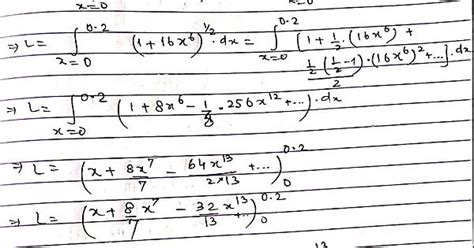 x=0 x=0
⇒ L = ∫_{x=0}^{0.2} (1+16x⁶)^{1/2}.dx = ∫_{x=0}^{0.2} [1 + 1/2.(16x⁶) + (1/2(1/2-1).(16x⁶)²)/2 +...].dx
⇒ L = ∫_{x=0}^{0.2} (1+8x⁶ - 1/8.256x¹² +...).dx
⇒ L = (x + 8x⁷/7 - 64x¹³/(2×13) +...)_0^{0.2}
⇒ L = (x + 8/7 x⁷ - 32x¹³/13 ...)_0^{0.2}